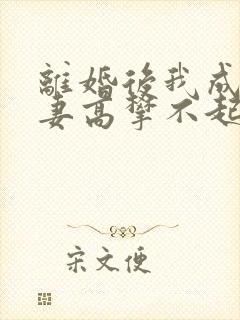 離婚後我成
妻高攀不起
宋文便